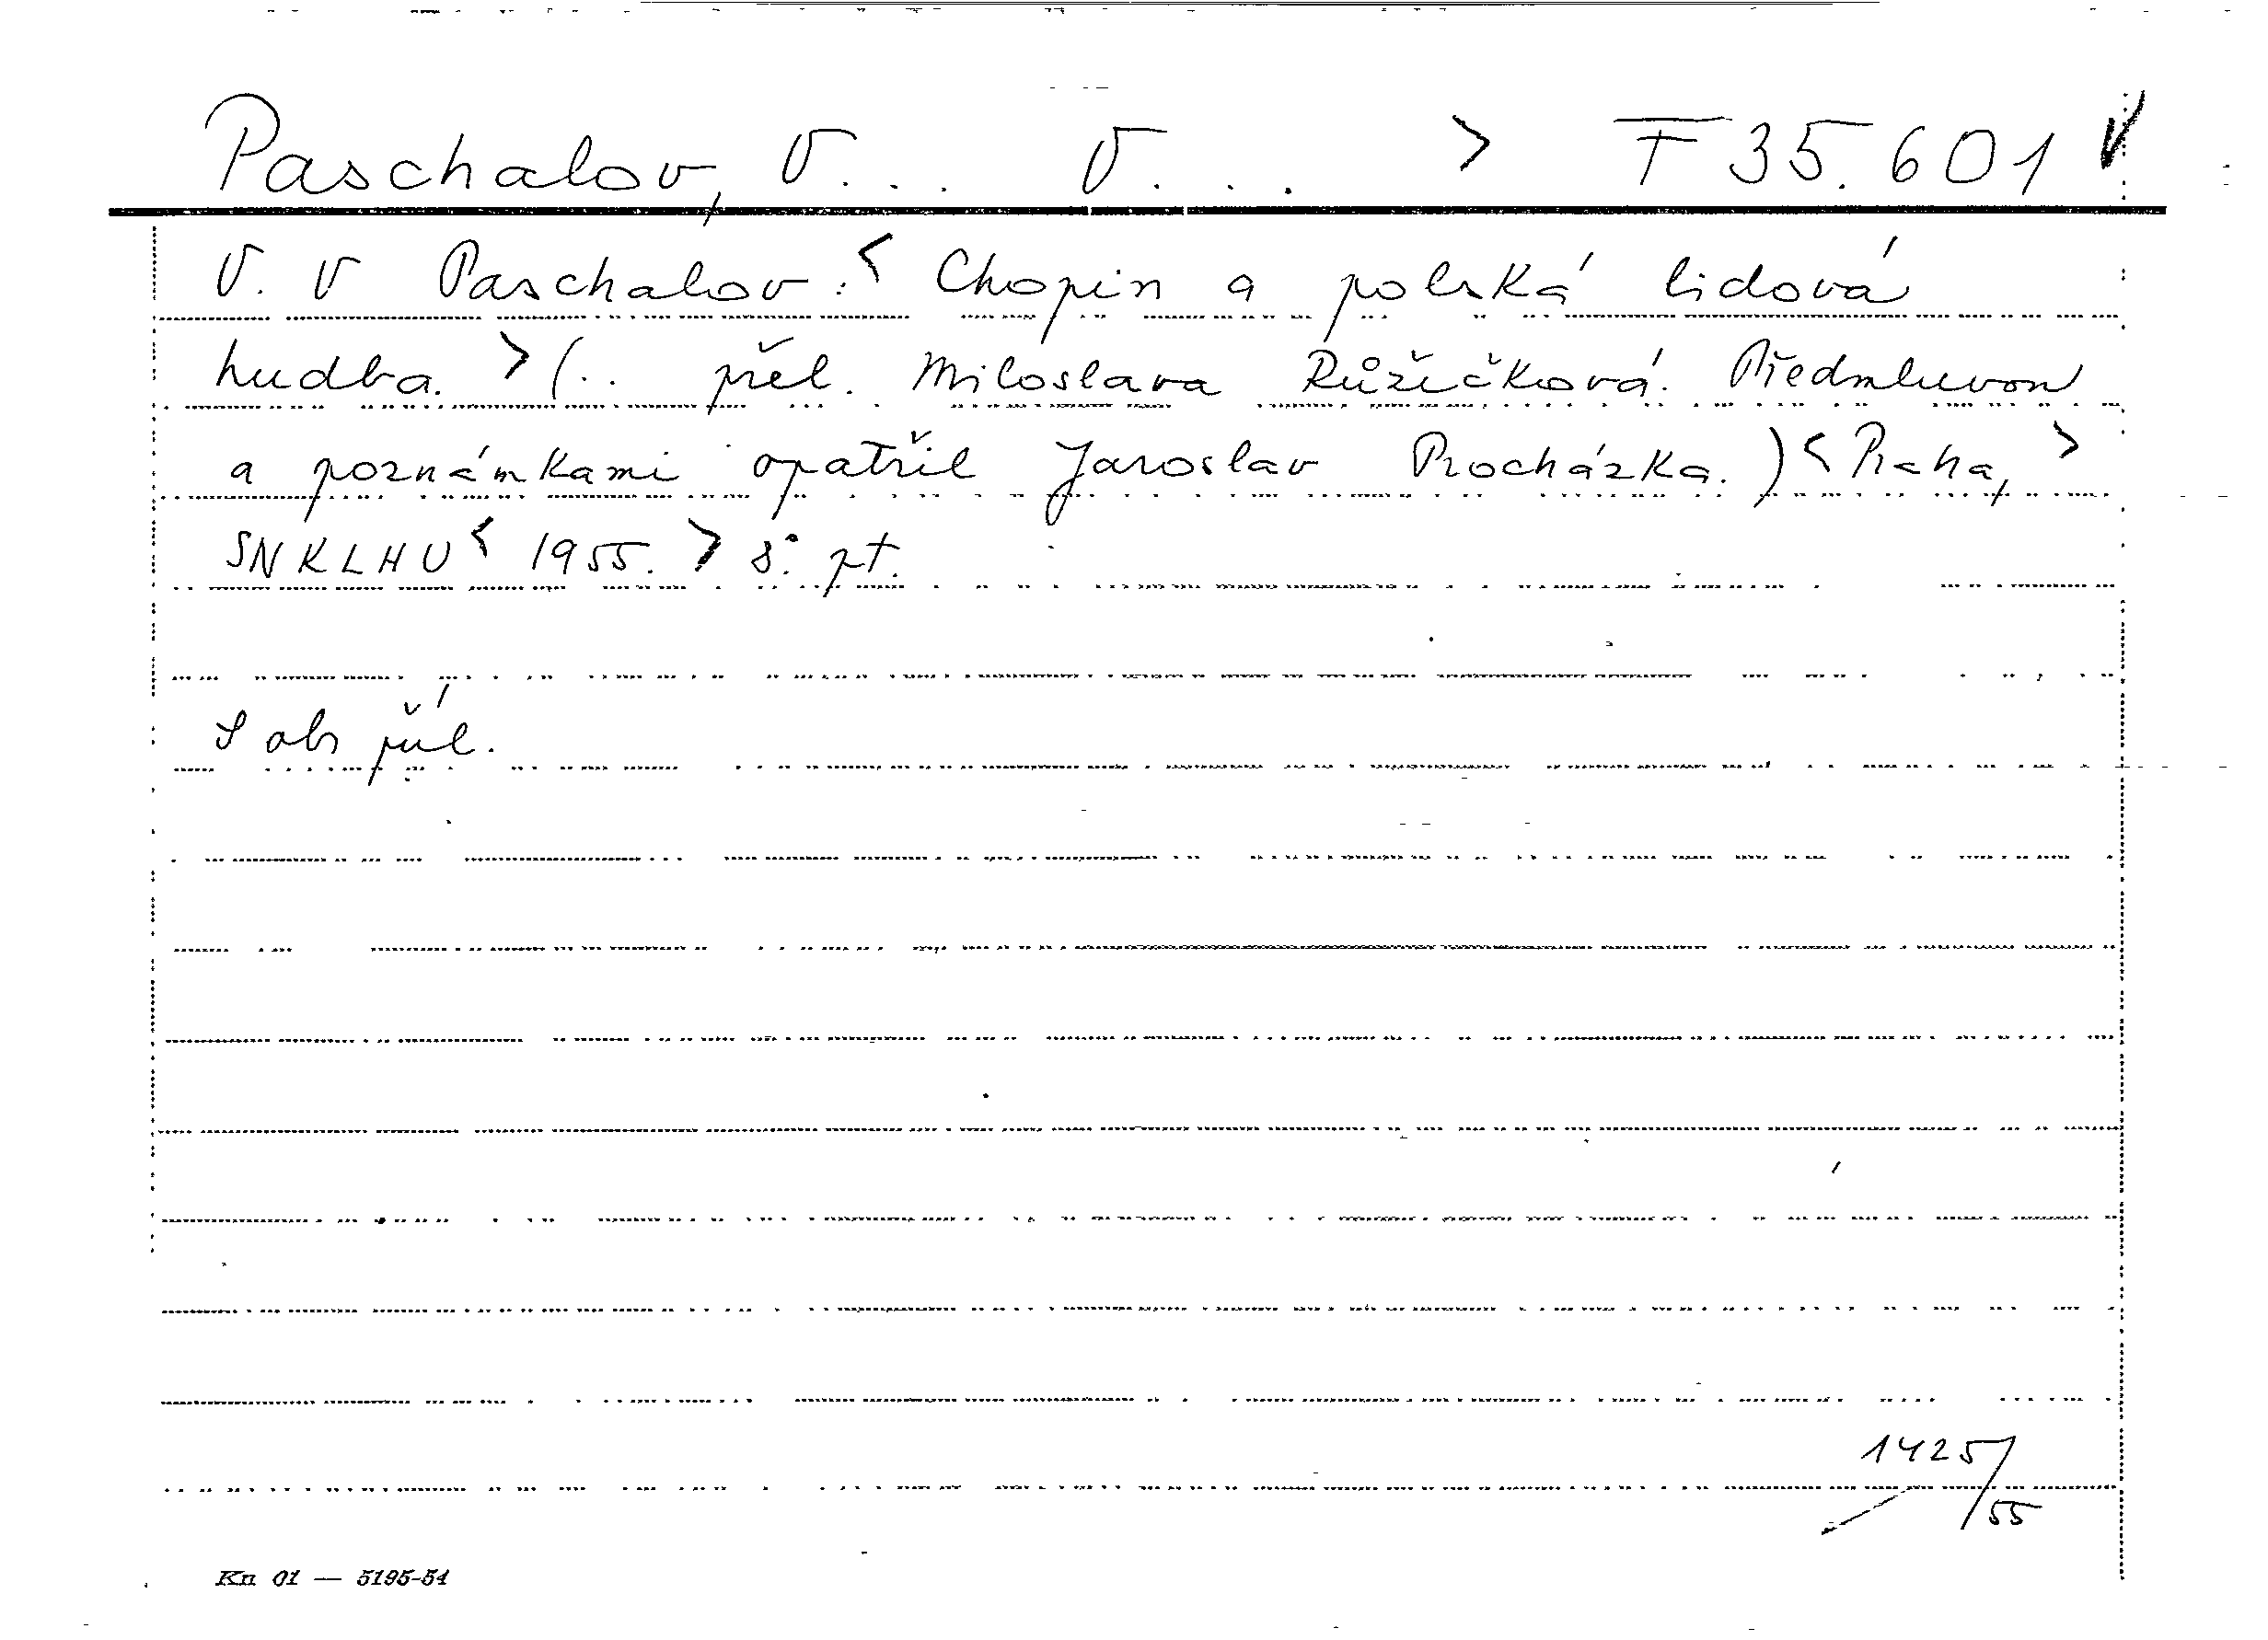 Paschalov, V... V... > F 35.601 V
V. V Paschalov: < Chopin a polská lidová
hudba. > (.. přel. Miloslava Růžičková. Předmluvou
a poznámkami opatřil Jaroslav Procházka.) < Praha, >
SNKLHU < 1955. > 8° pt.
S obr příl.
1425/55
Kn 01 — 5195-54